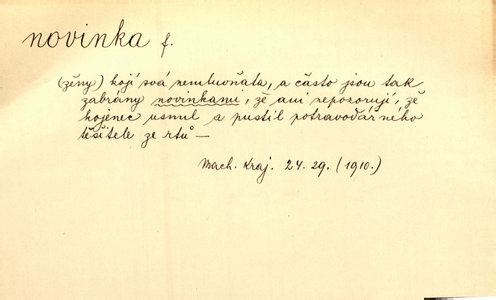 novinka f.
(ženy) kojí svá nemluvňata, a často jsou tak
zabrány novinkami, že ani nepozorují, že
kojenec usnul a pustil potravodárného
těšitele ze rtů —
Mach. Kraj. 24. 29. (1910.)